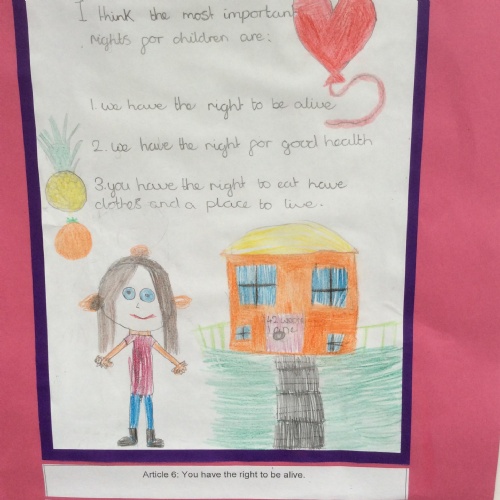 I think the most important
rights for children are:
1. we have the right to be alive
2. we have the right for good health
3. you have the right to eat have
clothes and a place to live.
42
lane
Article 6: You have the right to be alive.